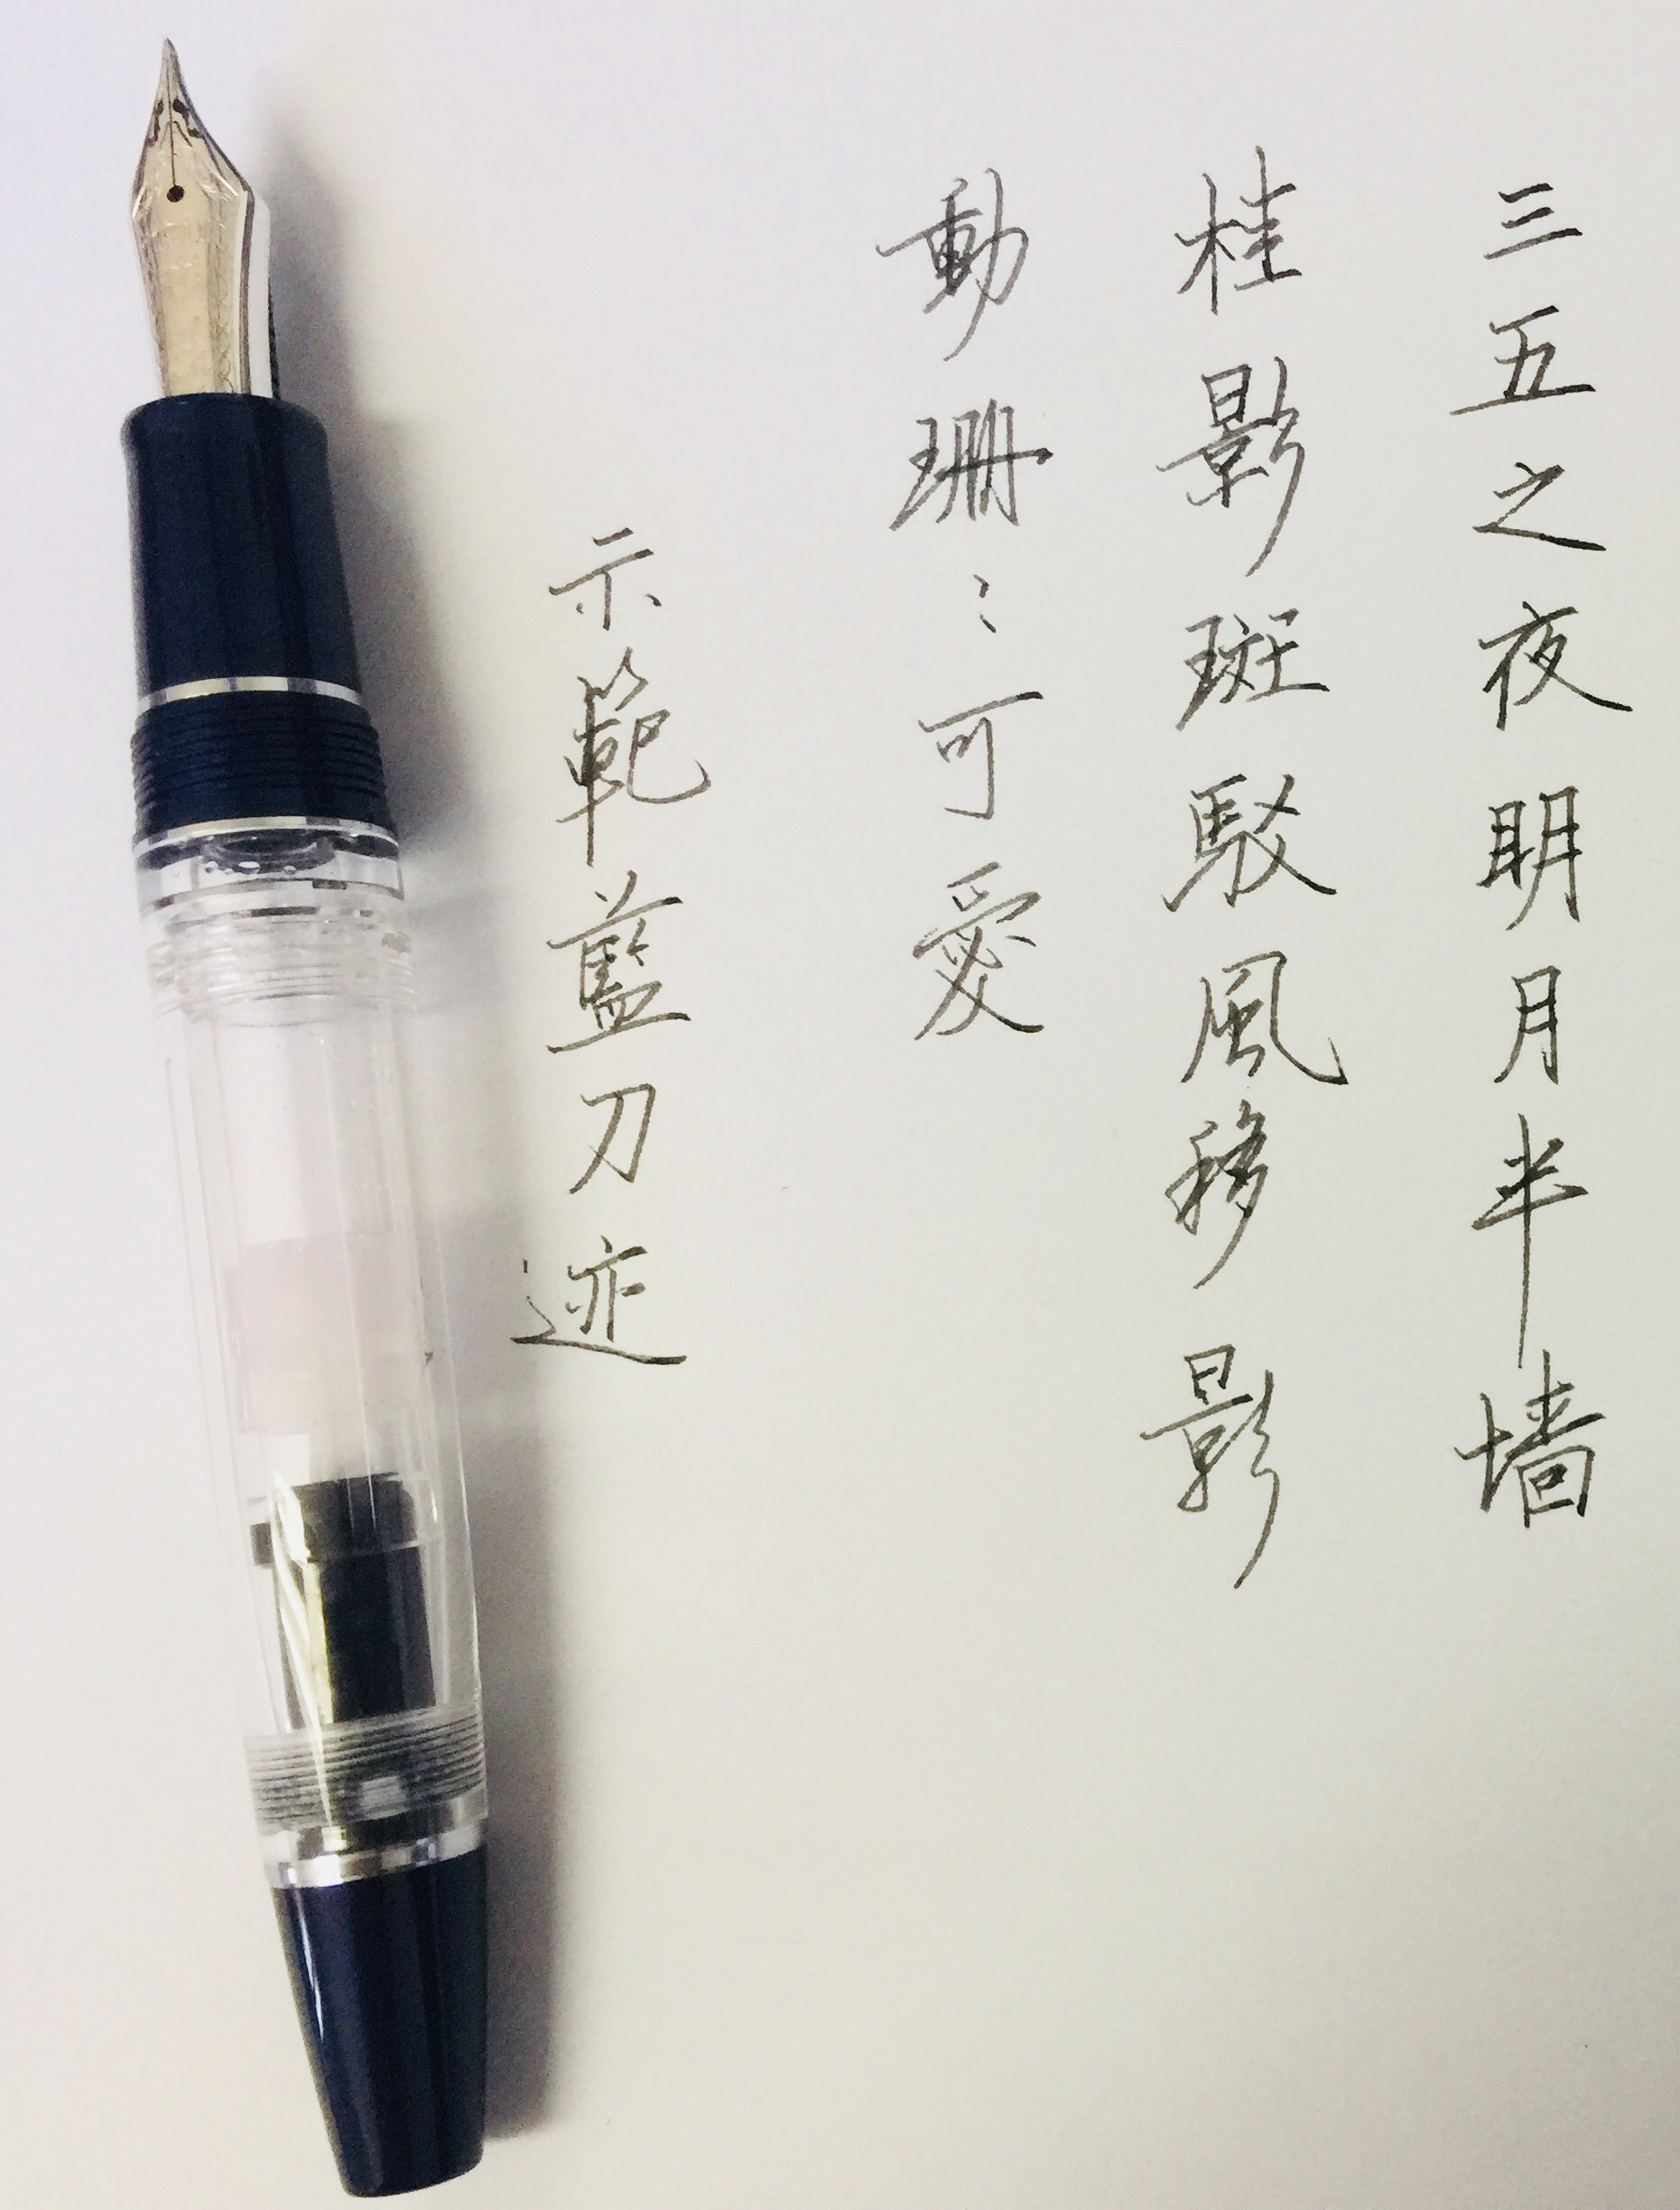 三五之夜明月半墙
桂影斑駁風移影
動珊〻可愛
示範藍刀迹